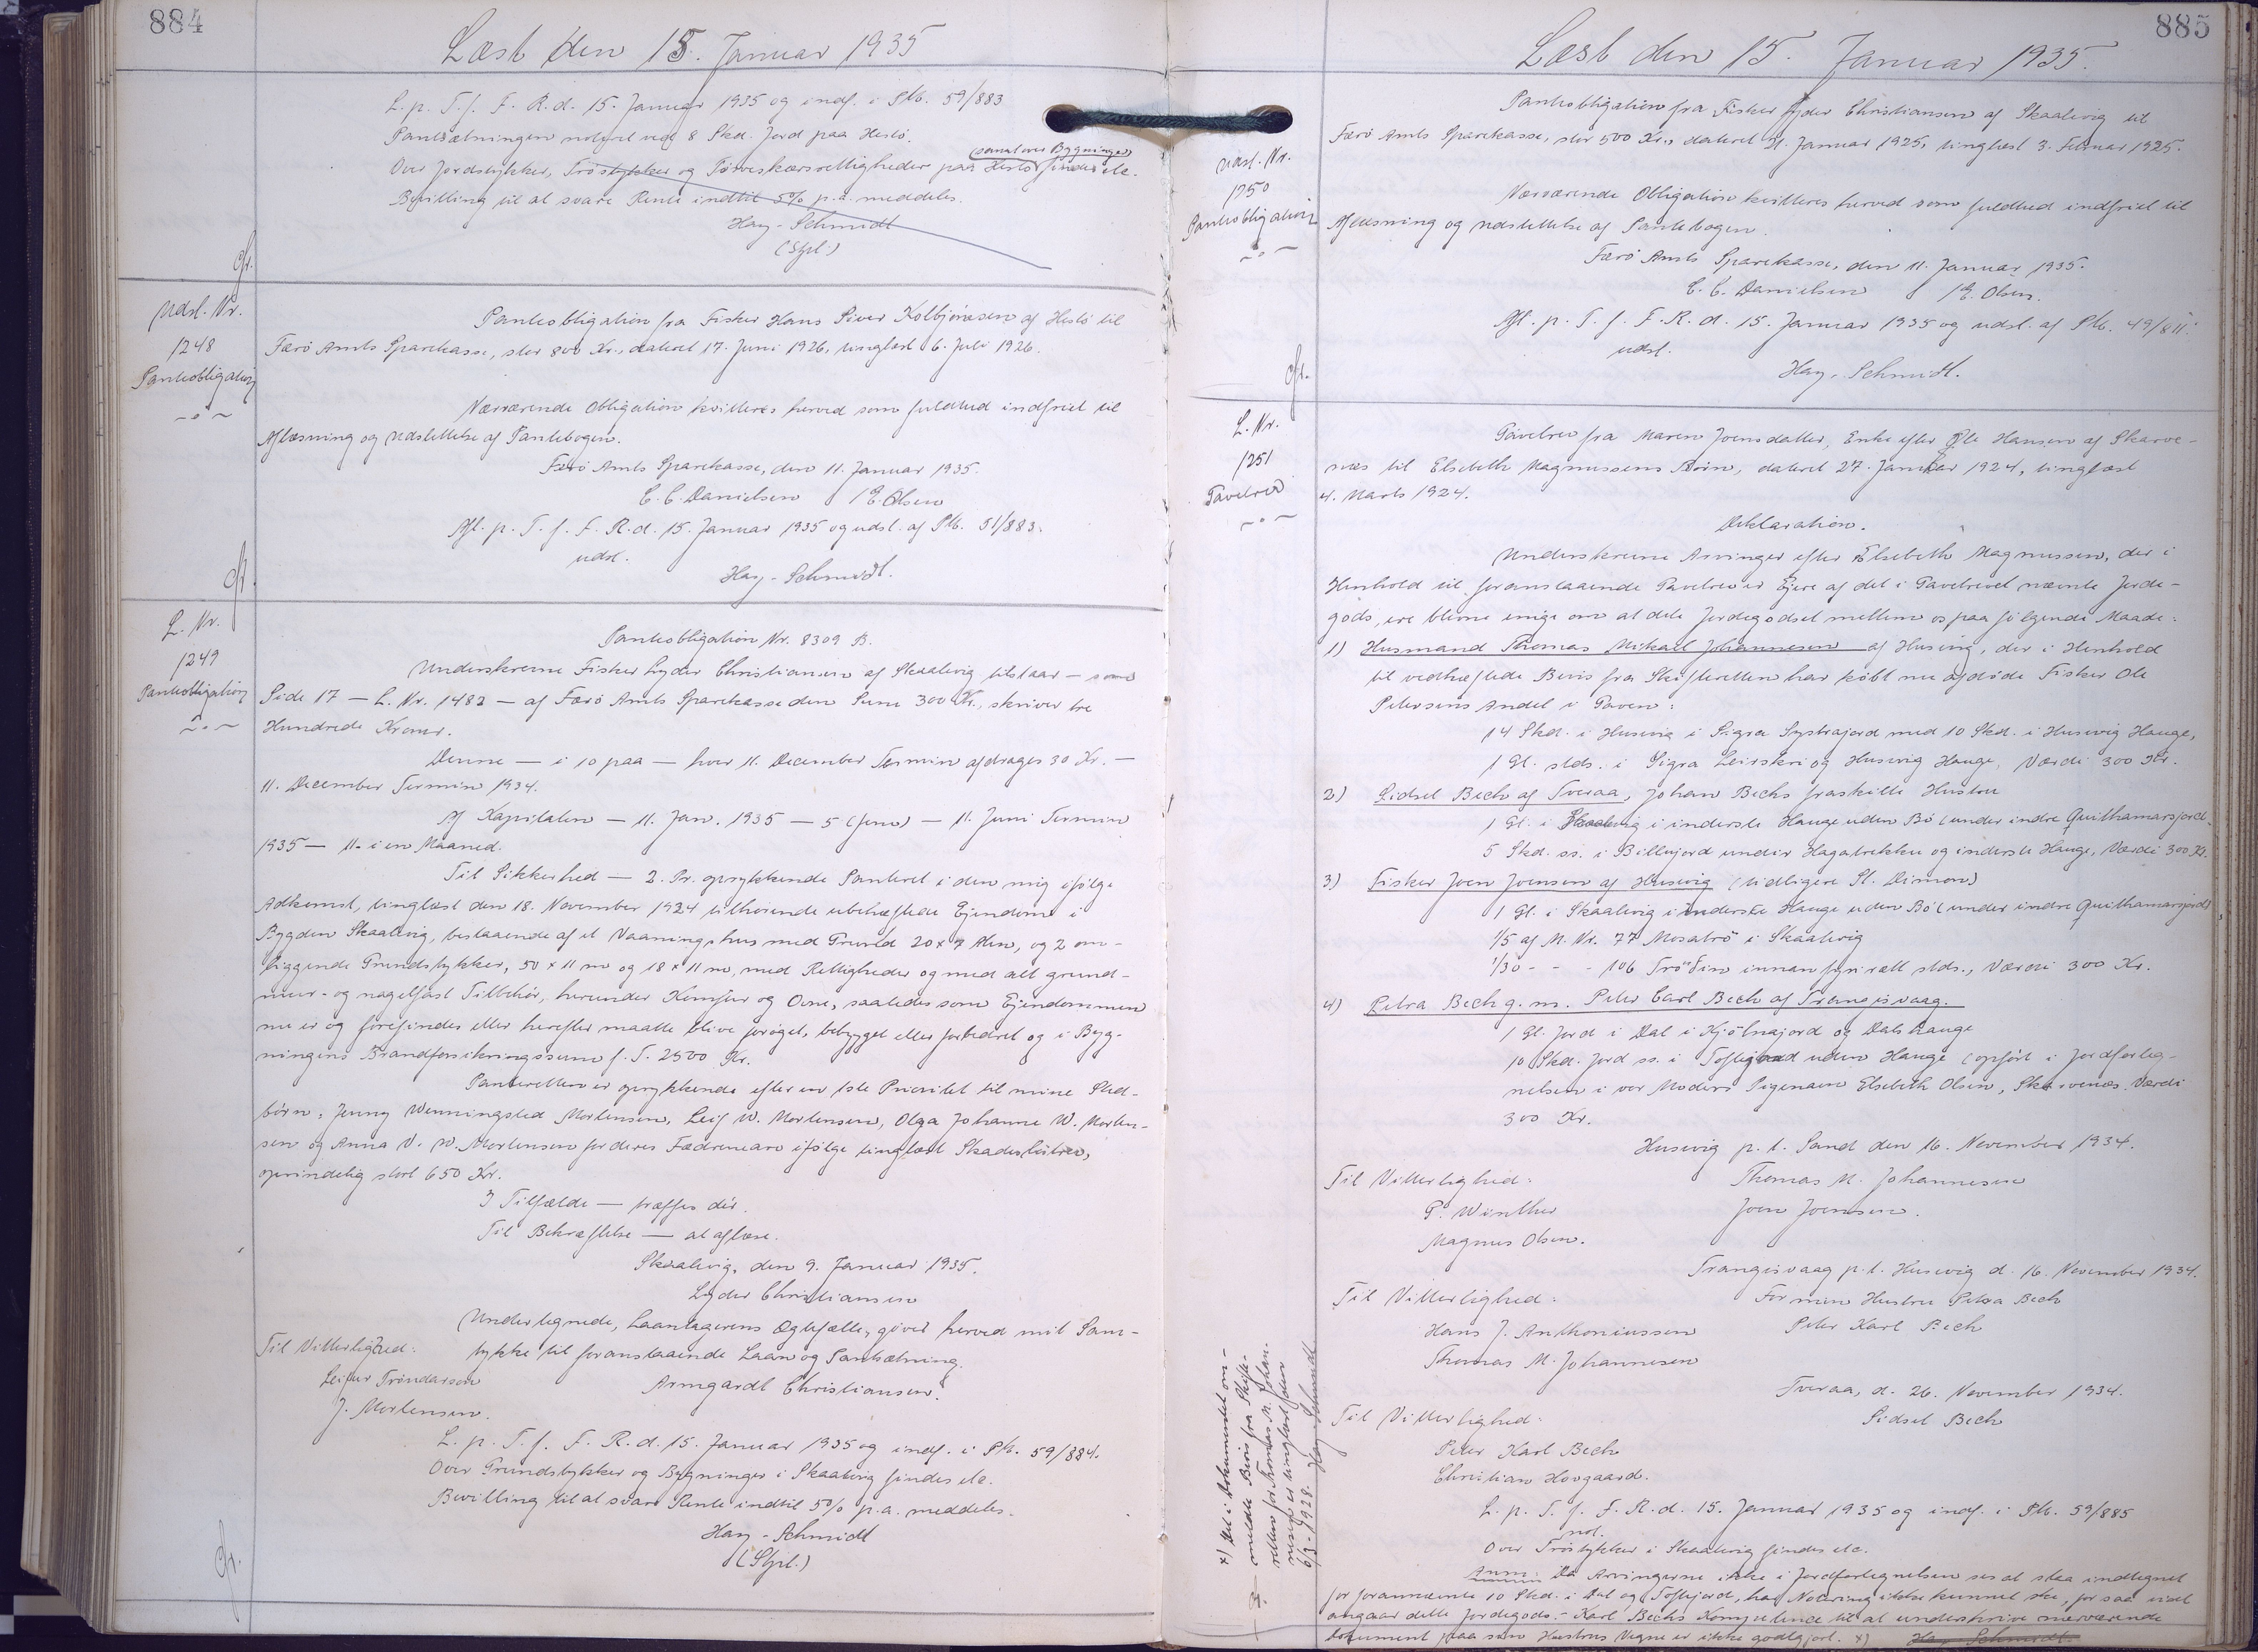 884
Læst den 15. Januar 1935
L. p. T. f. F. R. d. 15. Januar 1935 og indf. i Ptb. 59/883
Pantsætningen noteret ved 8 Skd. Jord paa Hestø.
(samt over Bygninger)
Over Jordstykker, Trøstykker og Tørveskærsrettigheder paa Hestø findes etc.
Bevilling til at svare Rente indtil 5% p.a. meddeles.
Hay-Schmidt
(Stpl.)
Udsl. Nr.
1248
Pantobligation
Pantobligation fra Fisker Hans Siver Kolbjørnsen af Hestø til
Færø Amts Sparekasse, stor 800 Kr., dateret 17. Juni 1926, tinglæst 6. Juli 1926.
Nærværende Obligation kvitteres herved som fuldtud indfriet til
Aflæsning og Udslettelse af Pantebogen.
Færø Amts Sparekasse, den 11. Januar 1935.
C. C. Danielsen / E. Olsen
Afl. p. T. f. F. R. d. 15. Januar 1935 og udsl. af Ptb. 51/883.
udsl.
Hay-Schmidt.
L. Nr.
1249
Pantobligation
Pantobligation Nr. 8309 B.
Underskrevne Fisker Lyder Christiansen af Skaalevig tilstaar — som
Side 17 — L. Nr. 1482 — af Færø Amts Sparekasse den Sum 300 Kr., skriver tre
Hundrede Kroner.
Denne — i 10 paa — hver 11. December Termin afdrages 30 Kr. —
11. December Termin 1934.
Af Kapitalen — 11. Jan. 1935 — 5 (fem) — 11. Juni Termin
1935 — 11. i en Maaned.
Til Sikkerhed — 2. Pr. oprykkende Panteret i den mig ifølge
Adkomst, tinglæst den 18. November 1924 tilhørende ubehæftede Ejendom i
Bygden Skaalevig, bestaaende af et Vaaningshus med Grund 20 x 9 Alen, og 2 om-
liggende Grundstykker, 50 x 11 m og 18 x 11 m, med Rettigheder og med alt grund-
mur- og nagelfast Tilbehør, herunder Komfur og Ovne, saaledes som Ejendommen
nu er og forefindes eller herefter maatte blive forøget, bebygget eller forbedret og i Byg-
ningens Brandforsikringssum f. T. 2500 Kr.
Panteretten er oprykkende efter en 1ste Prioritet til mine Sted-
børn: Jenny Wenningsted Mortensen, Leif W. Mortensen, Olga Johanne W. Morten-
sen og Anna V. W. Mortensen for deres Fædrenearv ifølge tinglæst Skadesløsbrev,
oprindelig stort 650 Kr.
I Tilfælde — træffes dér.
Til Bekræftelse — at aflæse.
Skaalevig, den 9. Januar 1935.
Lyder Christiansen
Undertegnede, Laantagerens Ægtefælle, giver herved mit Sam-
tykke til foranstaaende Laan og Pantsætning.
Til Vitterlighed:
Leifur Tróndarson
Armgardt Christiansen.
J. Mortensen.
L. p. T. f. F. R. d. 15. Januar 1935 og indf. i Ptb. 59/884.
Over Grundstykker og Bygninger i Skaalevig findes etc.
Bevilling til at svare Rente indtil 5% p.a. meddeles.
Hay-Schmidt
(Stpl.)
885
Læst den 15. Januar 1935.
Udsl. Nr.
1250
Pantobligation
Pantobligation fra Fisker Lyder Christiansen af Skaalevig til
Færø Amts Sparekasse, stor 500 Kr., dateret 31. Januar 1925, tinglæst 3. Februar 1925.
Nærværende Obligation kvitteres herved som fuldtud indfriet til
Aflæsning og Udslettelse af Pantebogen.
Færø Amts Sparekasse, den 11. Januar 1935.
C. C. Danielsen / E. Olsen.
Afl. p. T. f. F. R. d. 15. Januar 1935 og udsl. af Ptb. 49/811.
udsl.
Hay-Schmidt.
L. Nr.
1251
Gavebrev
Gavebrev fra Maren Joensdatter, Enke efter Ole Hansen af Skarve-
næs til Elsebeth Magnussens Børn, dateret 27. Januar 1924, tinglæst
4. Marts 1924.
Deklaration.
Underskrevne Arvinger efter Elsebeth Magnussen, der i
Henhold til foranstaaende Gavebrev er Ejere af det i Gavebrevet nævnte Jorde-
gods, ere blevne enige om at dele Jordegodset mellem os paa følgende Maade:
1) Husmand Thomas Mikael Johannesen af Husevig, der i Henhold
til vedhæftede Bevis fra Skifteretten har købt nu afdøde Fisker Ole
Petersens Andel i Gaven:
14 Skd. i Husevig i Sigra Systrajord med 10 Skd. i Husevig Hauge,
1 Gl. stds. i Sigra Leirskri og Husevig Hauge, Værdi 300 Kr.
2) Sidsel Bech af Tveraa, Johan Bechs fraskilte Hustru
1 Gl. i Skaalevig i inderste Hauge uden Bø (under indre Quithamarsjord.
5 Skd. ss. i Billujord undir Hagabrekku og inderste Hauge, Værdi 300 Kr.
3) Fisker Joen Joensen af Husevig (tidligere St. Dimon)
1 Gl. i Skaalevig i inderste Hauge uden Bø (under indre Quithamarsjord)
1/5 af M. Nr. 77 Mosatrø i Skaalevig
1/30 - - - 106 Trøðin innan fyri rætt stds., Værdi 300 Kr.
4) Petra Bech g. m. Peter Carl Bech af Trangisvaag.
1 Gl. Jord i Dal i Kjølnajord og Dals Hauge
10 Skd. Jord ss. i Toftejord uden Hauge (opført i Jordforteg-
nelsen i vor Moders Pigenavn Elsebeth Olsen, Skarvenæs. Værdi
300 Kr.
Husevig p. t. Sand den 16. November 1934.
Til Vitterlighed:
Thomas M. Johannesen
P. Winther
Joen Joensen.
Magnus Olsen.
Trangisvaag p. t. Husevig d. 16. November 1934.
Til Vitterlighed:
For min Hustru Petra Bech
Hans J. Anthoniussen
Peter Karl Bech
Thomas M. Johannesen
Tveraa, d. 26. November 1934.
Til Vitterlighed:
Sidsel Bech
Peter Karl Bech
Christian Hovgaard.
L. p. T. f. F. R. d. 15. Januar 1935 og indf. i Ptb. 59/885
not.
Over Trøstykker i Skaalevig findes etc.
Anm: Da Arvingerne ikke i Jordfortegnelsen ses at staa indtegnet
for forannævnte 10 Skd. i Dal og Toftejord, har Notering ikke kunnet ske, for saa vidt
angaar dette Jordegods. - Karl Bechs Kompetence til at underskrive nærværende
Dokument paa sin Hustrus Vegne er ikke godtgjort. x)
Hay-Schmidt.
x) Det i Dokumentet om-
meldte Bevis fra Skifte-
retten for Thomas M. Johan-
nesen er tinglæst den
6/3 1928. Hay-Schmidt